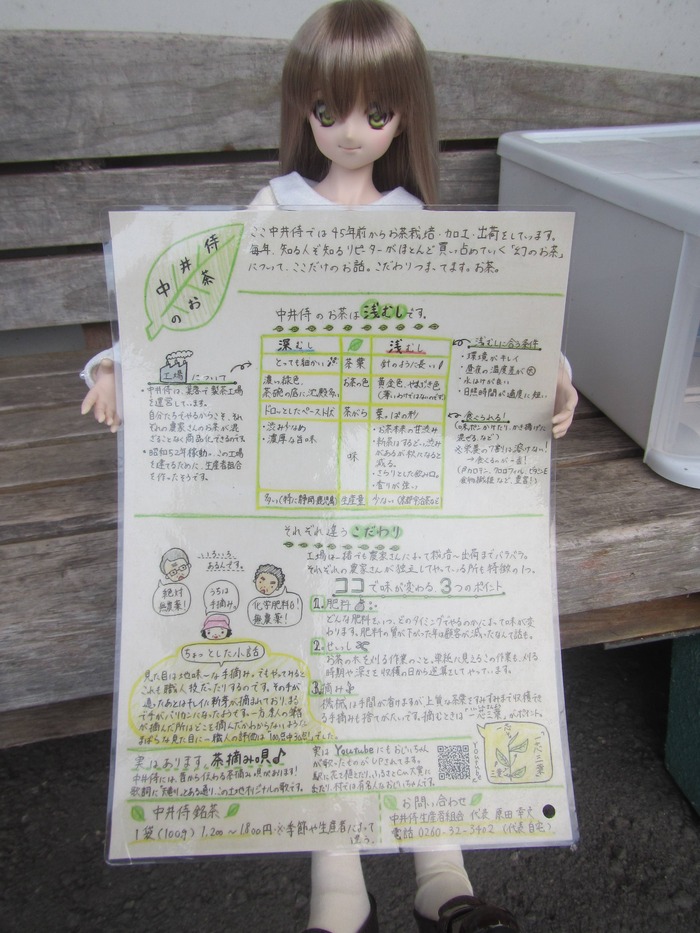 中井侍
のお茶
ここ中井侍では45年前からお茶栽培・加工・出荷をしています。
毎年、知る人ぞ知るリピーターがほとんど買い占めていく「幻のお茶」
について、ここだけのお話。こだわりつまってます。お茶。
中井侍のお茶は浅むしです。
深むし 浅むし
とっても細かい 茶葉 針のように長い
濃い緑色、 お茶の色 黄金色、やまぶき色
茶碗の底に沈殿多い (薄いわけではないのです)
ドローっとしたペースト状 茶がら 葉っぱの形
・渋み少なめ
・濃厚な旨味
味
・お茶本来の甘渋み
・新茶はするどい渋み
があるが秋になると
減る。
・さらりとした飲み口。
・香りが強い
多い(特に静岡鹿児島) 生産量 少ない(京都宇治茶など)
工場について
・中井侍は、集落で製茶工場
を運営しています。
自分たちでやるからこそ、それ
ぞれの農家さんのお茶が混
ざることなく商品化できるのです。
・昭和52年稼動。この工場
を建てるために、生産者組合
を作ったそうです。
浅むしに合う条件
・環境がキレイ
・昼夜の温度差が大
・水はけが良い
・日照時間が適度に短い
食べられる!
(味ポンかけたり、かき揚げに
混ぜる、など)
※栄養の7割は溶けない!
→食べるのが一番!
それぞれ違うこだわり
工場は一緒でも農家さんによって栽培〜出荷までバラバラ。
それぞれの農家さんが独立してやっている所も特徴の1つ。
いろいろ
あるんです。
絶対
無農薬!
うちは
手摘み。
化学肥料0!
無農薬!
ココで味が変わる、3つのポイント
1.肥料
どんな肥料をいつ、どのタイミングでやるのかによって味が変
わります。肥料の質が下がった年は顧客が減ったなんて話も。
2.せいし
お茶の木を刈る作業のこと。単純に見えるこの作業も、刈る
時期や深さを収穫の日から逆算してやっています。
3.摘み
機械は手間が省けますが上質な茶葉をすみずみまで収穫でき
る手摘みも捨てがたいです。摘むときは“一芯二葉”がポイント。
ちょっとした小話
見た目は地味ーな手摘み。でもやってみると
これも職人技だったりするのです。その手が
通ったあとはキレイに新芽が摘まれており、まる
で手がバリカンになったようです。一方素人の筆者
が摘んだ所はどこを摘んだかわからないような
まばらな見た目に…職人の評価は「100点中30点」でした。
実はあります。茶摘みの唄♪
中井侍には、昔から伝わる茶摘み唄があります!
実はYoutubeにもおじいちゃん
が歌ったものがUPされてます。
Youtube
一芯二葉
中井侍銘茶
1袋(100g) 1,200〜1,800円 ※季節や生産者によって
違う。
お問い合わせ
中井侍生産者組合 代表 原田幸文
電話 0260-32-3402 (代表自宅)